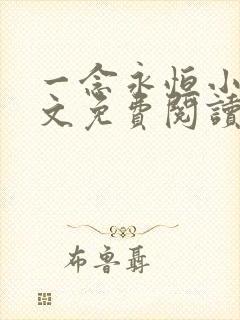 一念永恒小
文免費閱讀
布魯聶